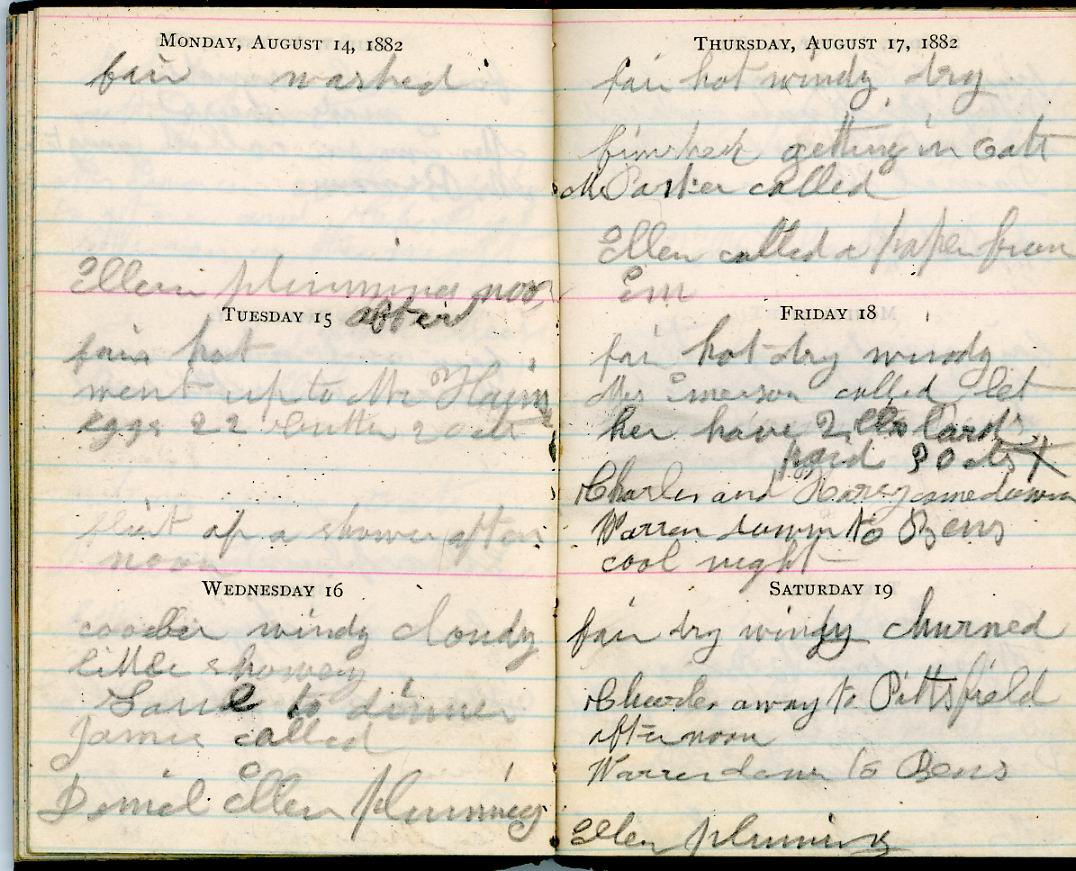 MONDAY, AUGUST 14, 1882
fair washed
Ellen plumming
TUESDAY 15
fair hot
went up to Mr
eggs 22 butter 20 cts
of a shower after
noon
WEDNESDAY 16
windy cloudy
little showery
to dinner
Jamie called
Daniel Ellen plumming
THURSDAY, AUGUST 17, 1882
fair hot windy dry
finished getting in oats
Mr Parker called
Ellen called a paper from
Em
FRIDAY 18
fair hot dry windy
Mrs Emerson called let
her have 2 lbs Lard
paid 30 cts X
Charles and came down
Warren down to Bens
cool night
SATURDAY 19
fair dry windy churned
Charles away to Pittsfield
afternoon
Warren down to Bens
Ellen pluming